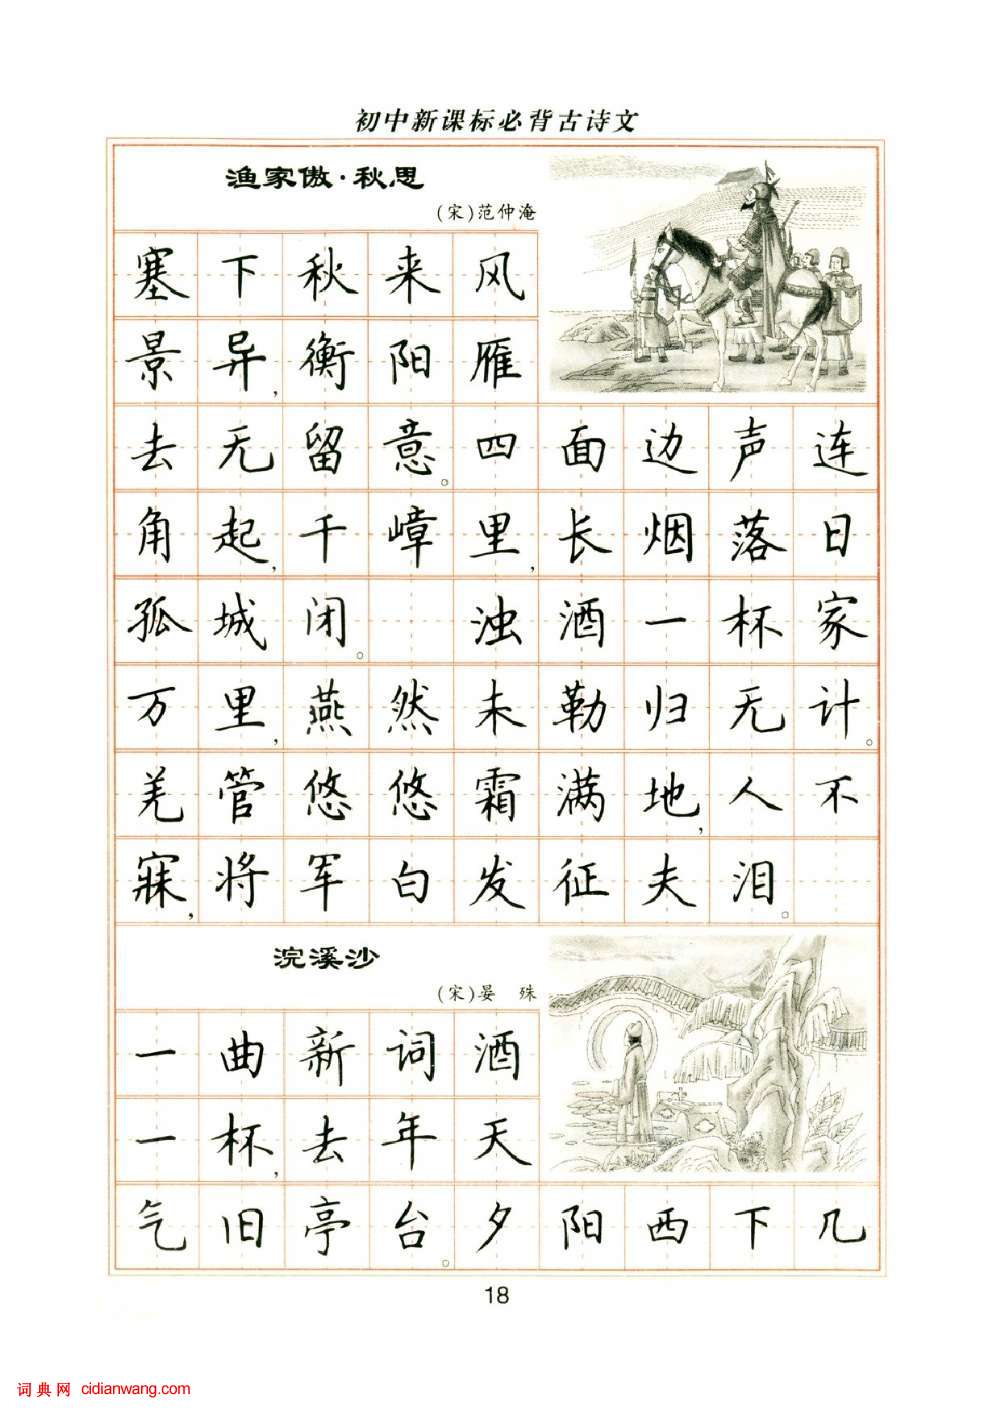 初中新课标必背古诗文
渔家傲·秋思
(宋)范仲淹
塞下秋来风
景异,衡阳雁
去无留意。四面边声连
角起,千嶂里,长烟落日
孤城闭。 浊酒一杯家
万里,燕然未勒归无计。
羌管悠悠霜满地,人不
寐,将军白发征夫泪。
浣溪沙
(宋)晏 殊
一曲新词酒
一杯,去年天
气旧亭台。夕阳西下几
18
词典网 cidianwang.com